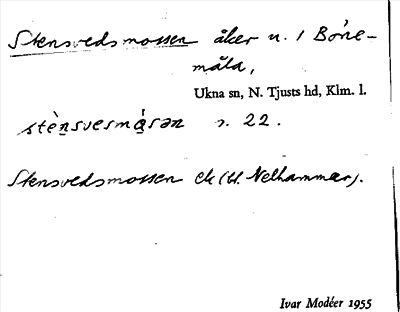 Stensvedsmossen åker n. 1 Börne-
måla,
Ukna sn, N. Tjusts hd, Klm. l.
stènsvesmå̀sən s. 22.
Stensvedsmossen ek (bl. Nelhammar).
Ivar Modéer 1955